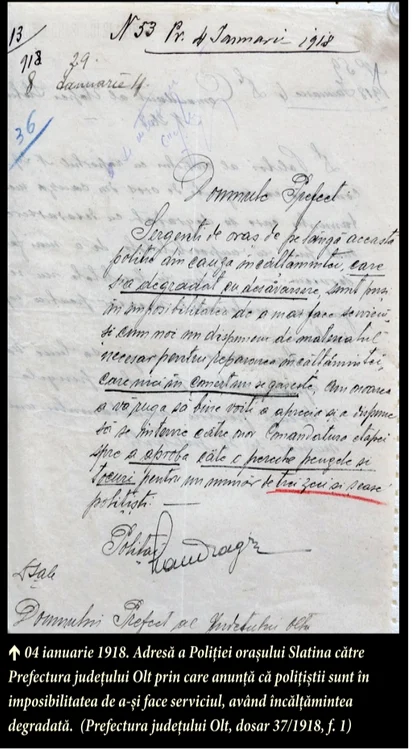 13/
N 53 Pr. 4 Ianuarie 1918
118
8
29
Ianuarie 4
36
Domnule Prefect
Sergenți de oraș de pe lângă această
poliție din cauza încălțămintei, care
s-a degradat cu desăvârșire sunt puși
în imposibilitatea de a mai face serviciu,
și cum noi nu dispunem de materialul
necesar pentru repararea încălțămintei,
care nici în comerț nu se găsește, am onoarea
a vă ruga să bine voiți a aprecia și a dispune
să se intervie către onor Comandatura etapei
spre a aproba câte o pereche pengele și
tocuri pentru un număr de trei zeci și șease
polițiști. —
Polițai
Dsale
Domnului Prefect al Județului Olt
↑ 04 ianuarie 1918. Adresă a Poliției orașului Slatina către
Prefectura județului Olt prin care anunță că polițiștii sunt în
imposibilitatea de a-și face serviciul, având încălțămintea
degradată. (Prefectura județului Olt, dosar 37/1918, f. 1)